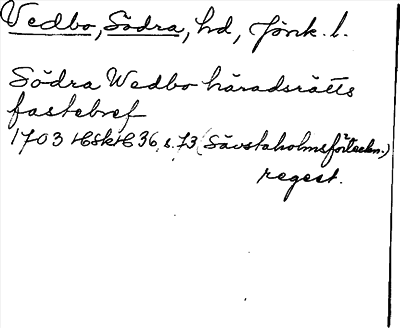 Vedbo, Södra, hd, Jönk. l.
Södra Wedbo häradsrätts
fastebref
1703 HSkH 36, s. 73 (Sävstaholmsförteckn.)
regest.